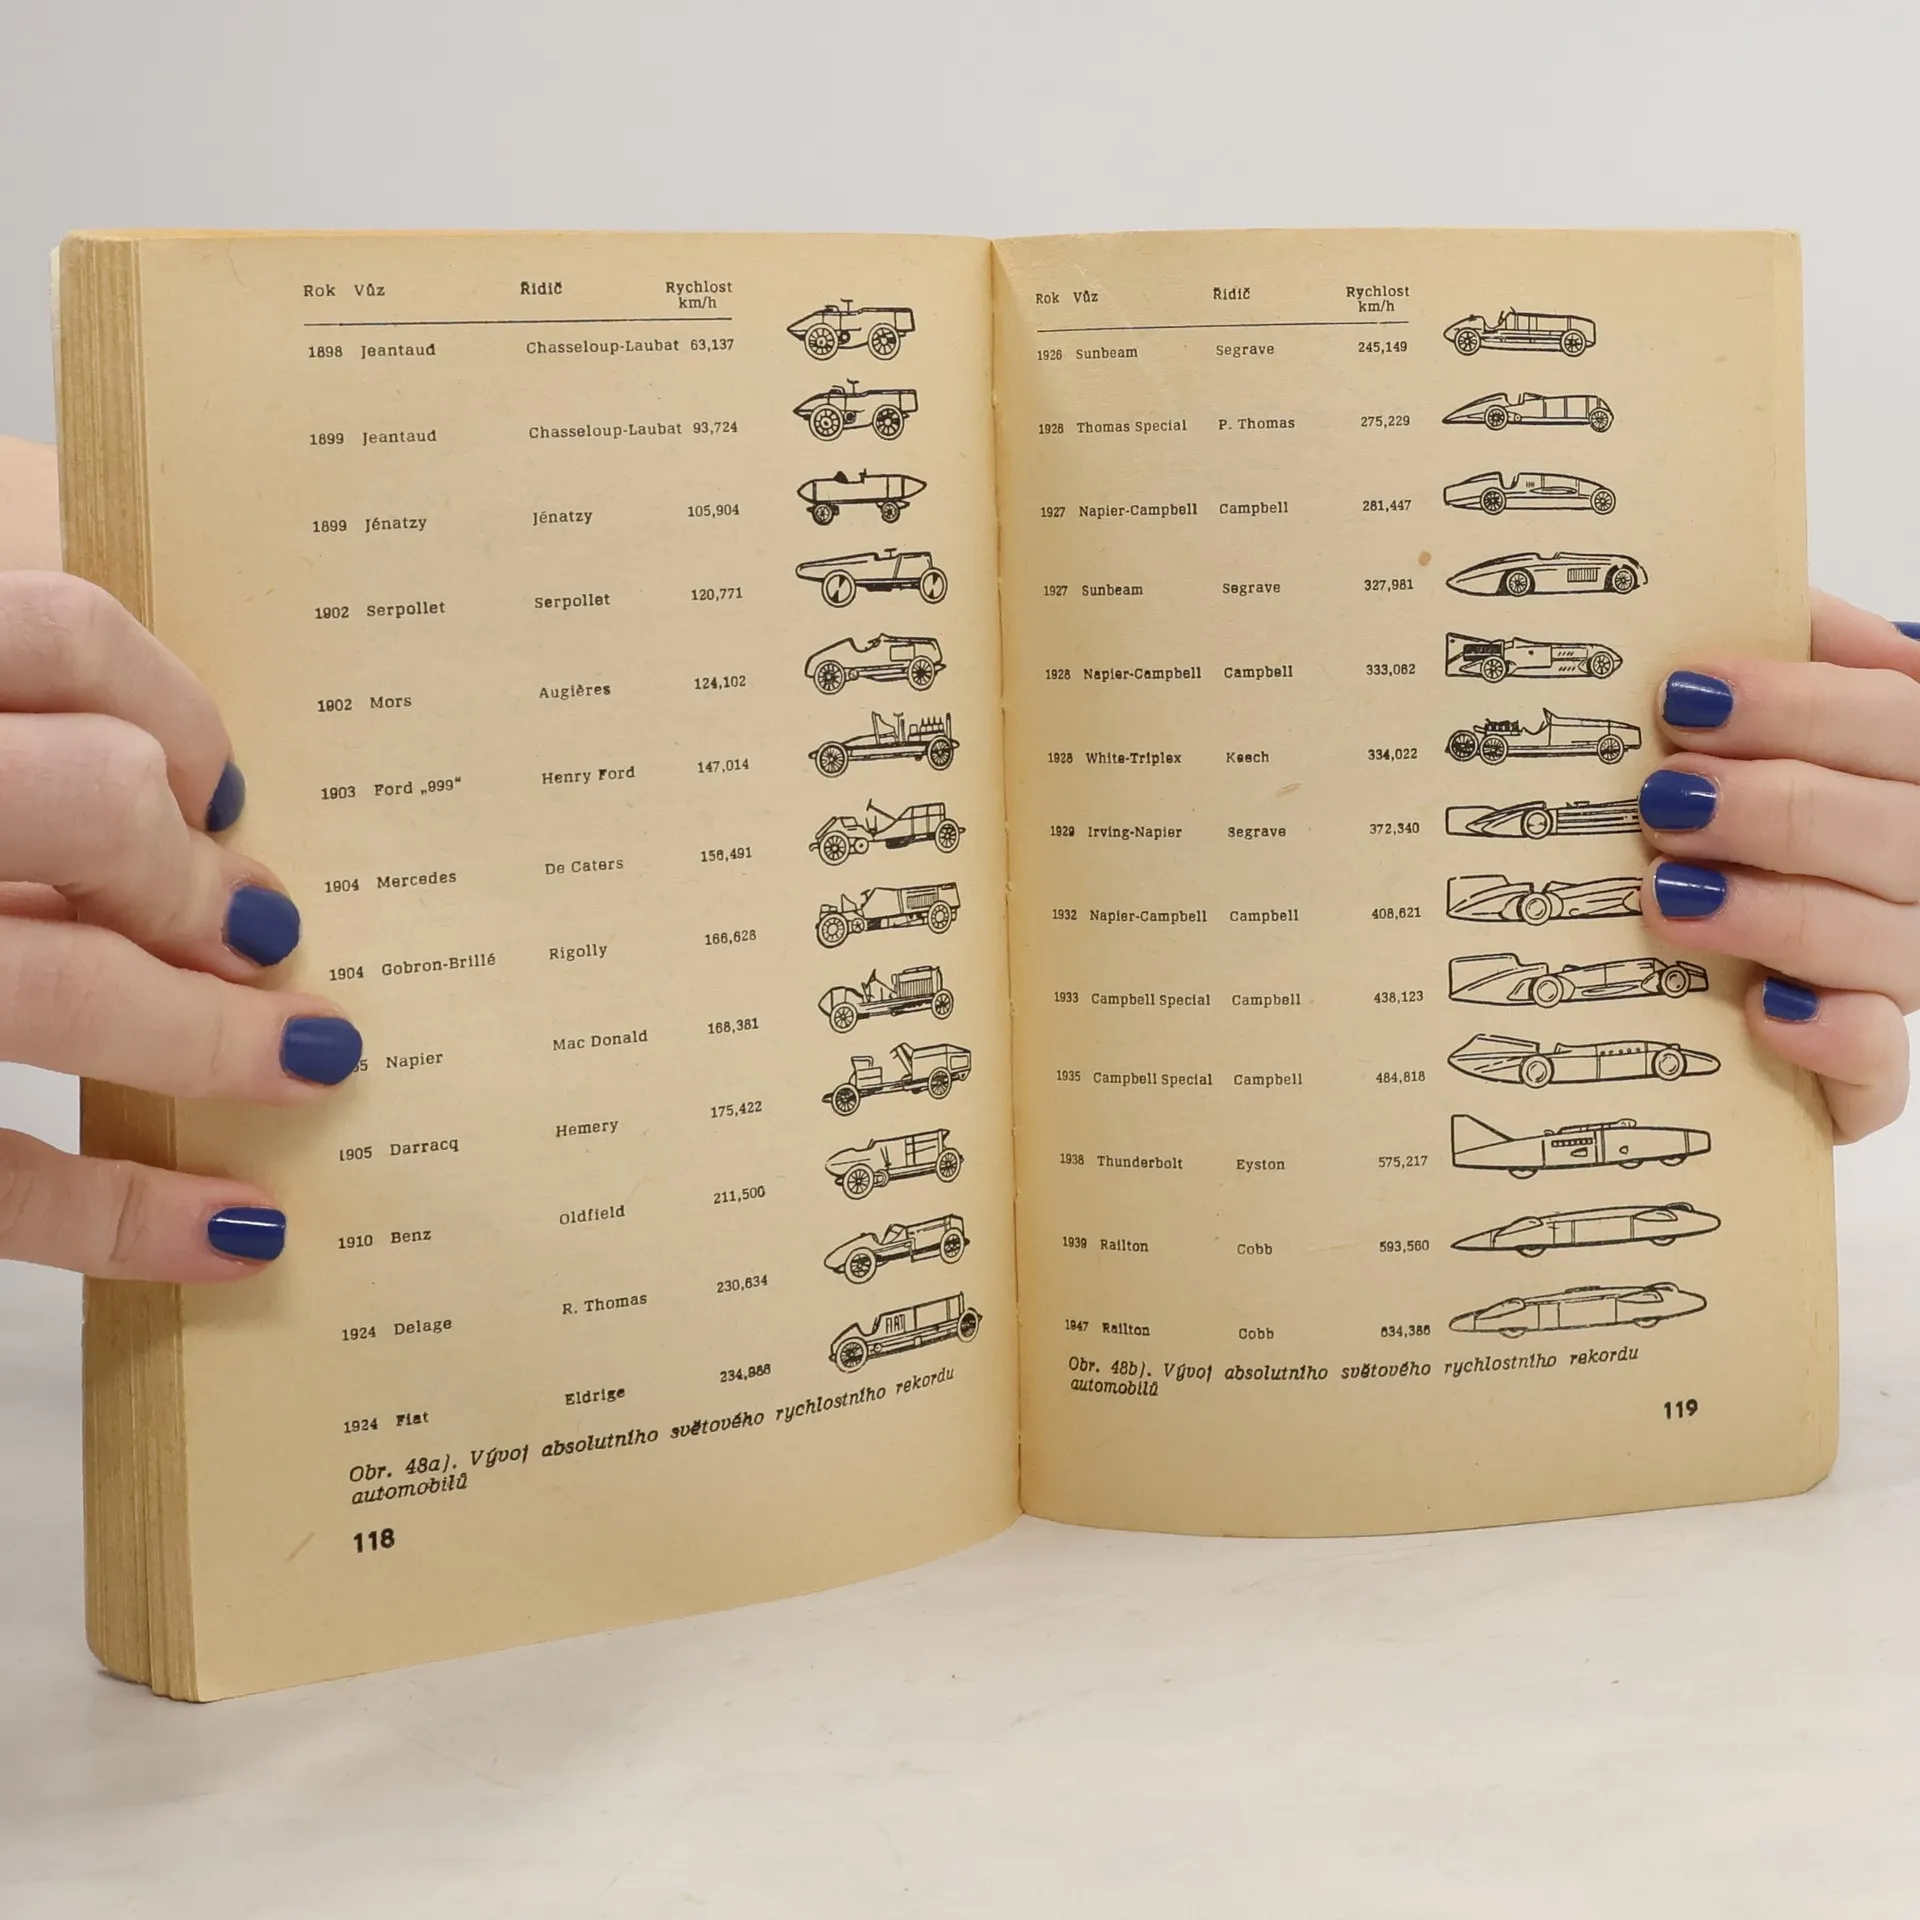 Rok Vůz Řidič Rychlost
km/h
1898 Jeantaud Chasseloup-Laubat 63,137
1899 Jeantaud Chasseloup-Laubat 93,724
1899 Jénatzy Jénatzy 105,904
1902 Serpollet Serpollet 120,771
1902 Mors Augières 124,102
1903 Ford „999“ Henry Ford 147,014
1904 Mercedes De Caters 156,491
1904 Gobron-Brillé Rigolly 166,628
Napier Mac Donald 168,381
1905 Darracq Hemery 175,422
1910 Benz Oldfield 211,500
1924 Delage R. Thomas 230,634
1924 Fiat Eldrige 234,986
FIAT
Obr. 48a). Vývoj absolutního světového rychlostního rekordu
automobilů
118
Rok Vůz Řidič Rychlost
km/h
1926 Sunbeam Segrave 245,149
1926 Thomas Special P. Thomas 275,229
1927 Napier-Campbell Campbell 281,447
1927 Sunbeam Segrave 327,981
1928 Napier-Campbell Campbell 333,062
1928 White-Triplex Keech 334,022
1929 Irving-Napier Segrave 372,340
1932 Napier-Campbell Campbell 408,621
1933 Campbell Special Campbell 438,123
1935 Campbell Special Campbell 484,818
1938 Thunderbolt Eyston 575,217
1939 Railton Cobb 593,560
1947 Railton Cobb 634,386
Obr. 48b). Vývoj absolutního světového rychlostního rekordu
automobilů
119